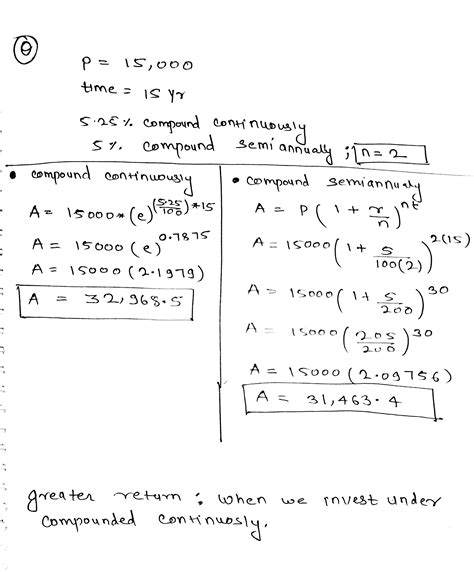 θ
P = 15,000
time = 15 yr
5.25% compound continuously
5% compound semiannually ; n = 2
• compound continuously
A = 15000*(e)^(5.25/100)*15
A = 15000(e)^0.7875
A = 15000(2.1979)
A = 32,968.5
• compound semiannualy
A = P(1 + r/n)^nt
A = 15000(1 + 5/100(2))^2(15)
A = 15000(1 + 5/200)^30
A = 15000(205/200)^30
A = 15000(2.09756)
A = 31,463.4
greater return : when we invest under
compounded continuosly.